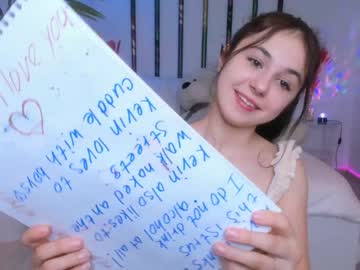 I do not drink
alcohol at all
Kevin also likes to
walk naked on the
streets
Kevin loves to
cuddle with boys
I love you